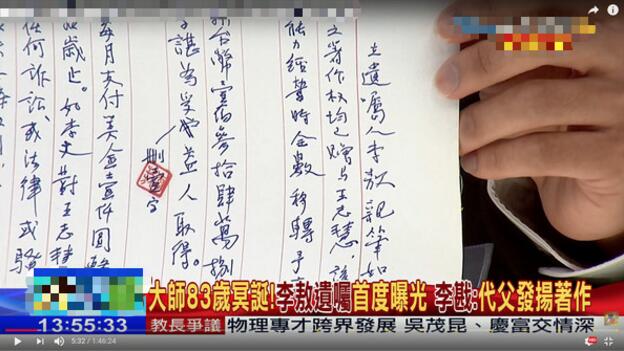 立遺囑人李敖親筆如
之著作权均之贈与王志慧,
能力經營時全數移轉予
台幣壹佰參拾肆萬捌
諶為受益人取得。
刪壹字
每月支付美金壹仟圓
歲止。如李文對王志慧
任何訴訟或法律或騷
大師83歲冥誕!李敖遺囑首度曝光 李戡:代父發揚著作
13:55:33
教長爭議 物理專才跨界發展 吳茂昆、慶富交情深
5:32 / 1:46:24